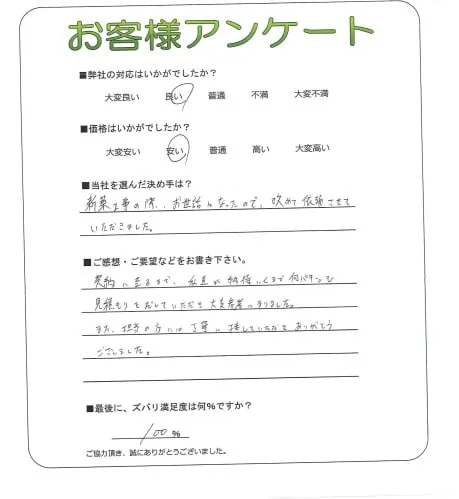 お客様アンケート
■弊社の対応はいかがでしたか？
大変良い 良い 普通 不満 大変不満
■価格はいかがでしたか？
大変安い 安い 普通 高い 大変高い
■当社を選んだ決め手は？
新築工事の際、お世話になったので、改めて依頼させて
いただきました。
■ご感想・ご要望などをお書き下さい。
契約に至るまで、私達が納得いくまで何パターンも
見積もりをだしていただき大変参考になりました。
また、担当の方には丁寧に接していただきありがとう
ございました。
■最後に、ズバリ満足度は何%ですか？
100 %
ご協力頂き、誠にありがとうございました。